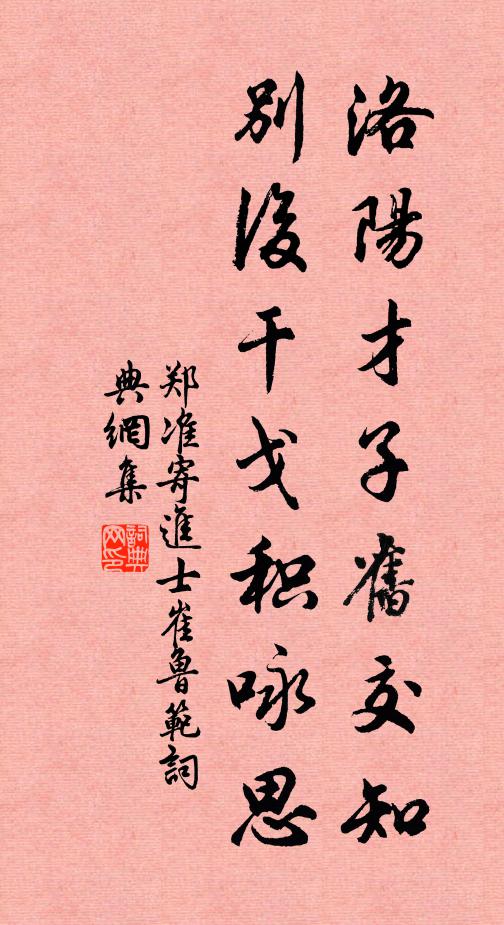 洛陽才子舊交知
別後干戈积咏思
郑准寄進士崔魯範詞
典網集
詞典
网印